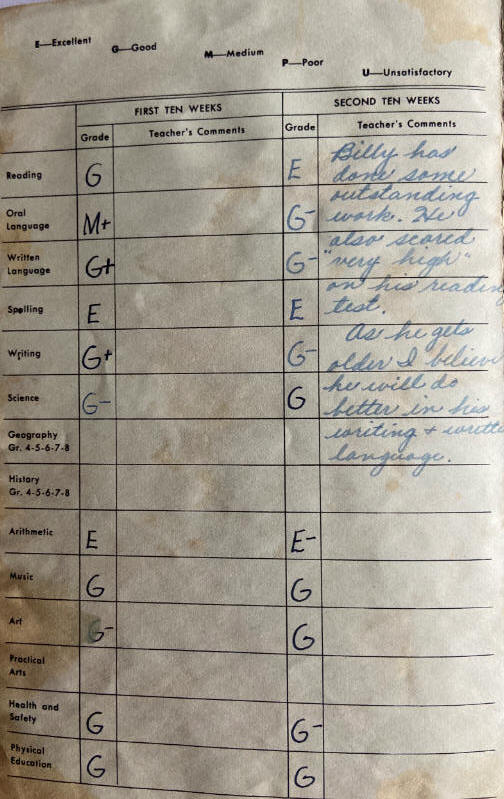 E—Excellent G—Good M—Medium P—Poor U—Unsatisfactory
FIRST TEN WEEKS SECOND TEN WEEKS
Grade Teacher's Comments Grade Teacher's Comments
Reading G E Billy has
done some
outstanding
Oral
Language M+ G- work. He
also scored
Written
Language G+ G- "very high"
on his readin
Spelling E E test.
As he gets
Writing G+ G- older I believe
he will do
Science G- G better in his
writing + writte
Geography
Gr. 4-5-6-7-8 language.
History
Gr. 4-5-6-7-8
Arithmetic E E-
Music G G
Art G- G
Practical
Arts
Health and
Safety G G-
Physical
Education G G